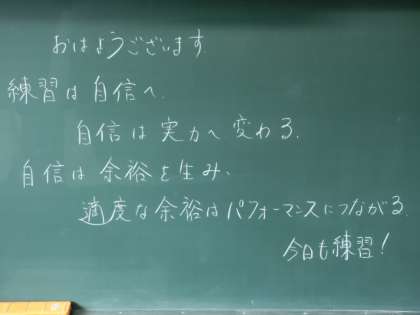 おはようございます.
練習は自信へ.
自信は実力へ変わる.
自信は余裕を生み、
適度な余裕はパフォーマンスにつながる
今日も練習!